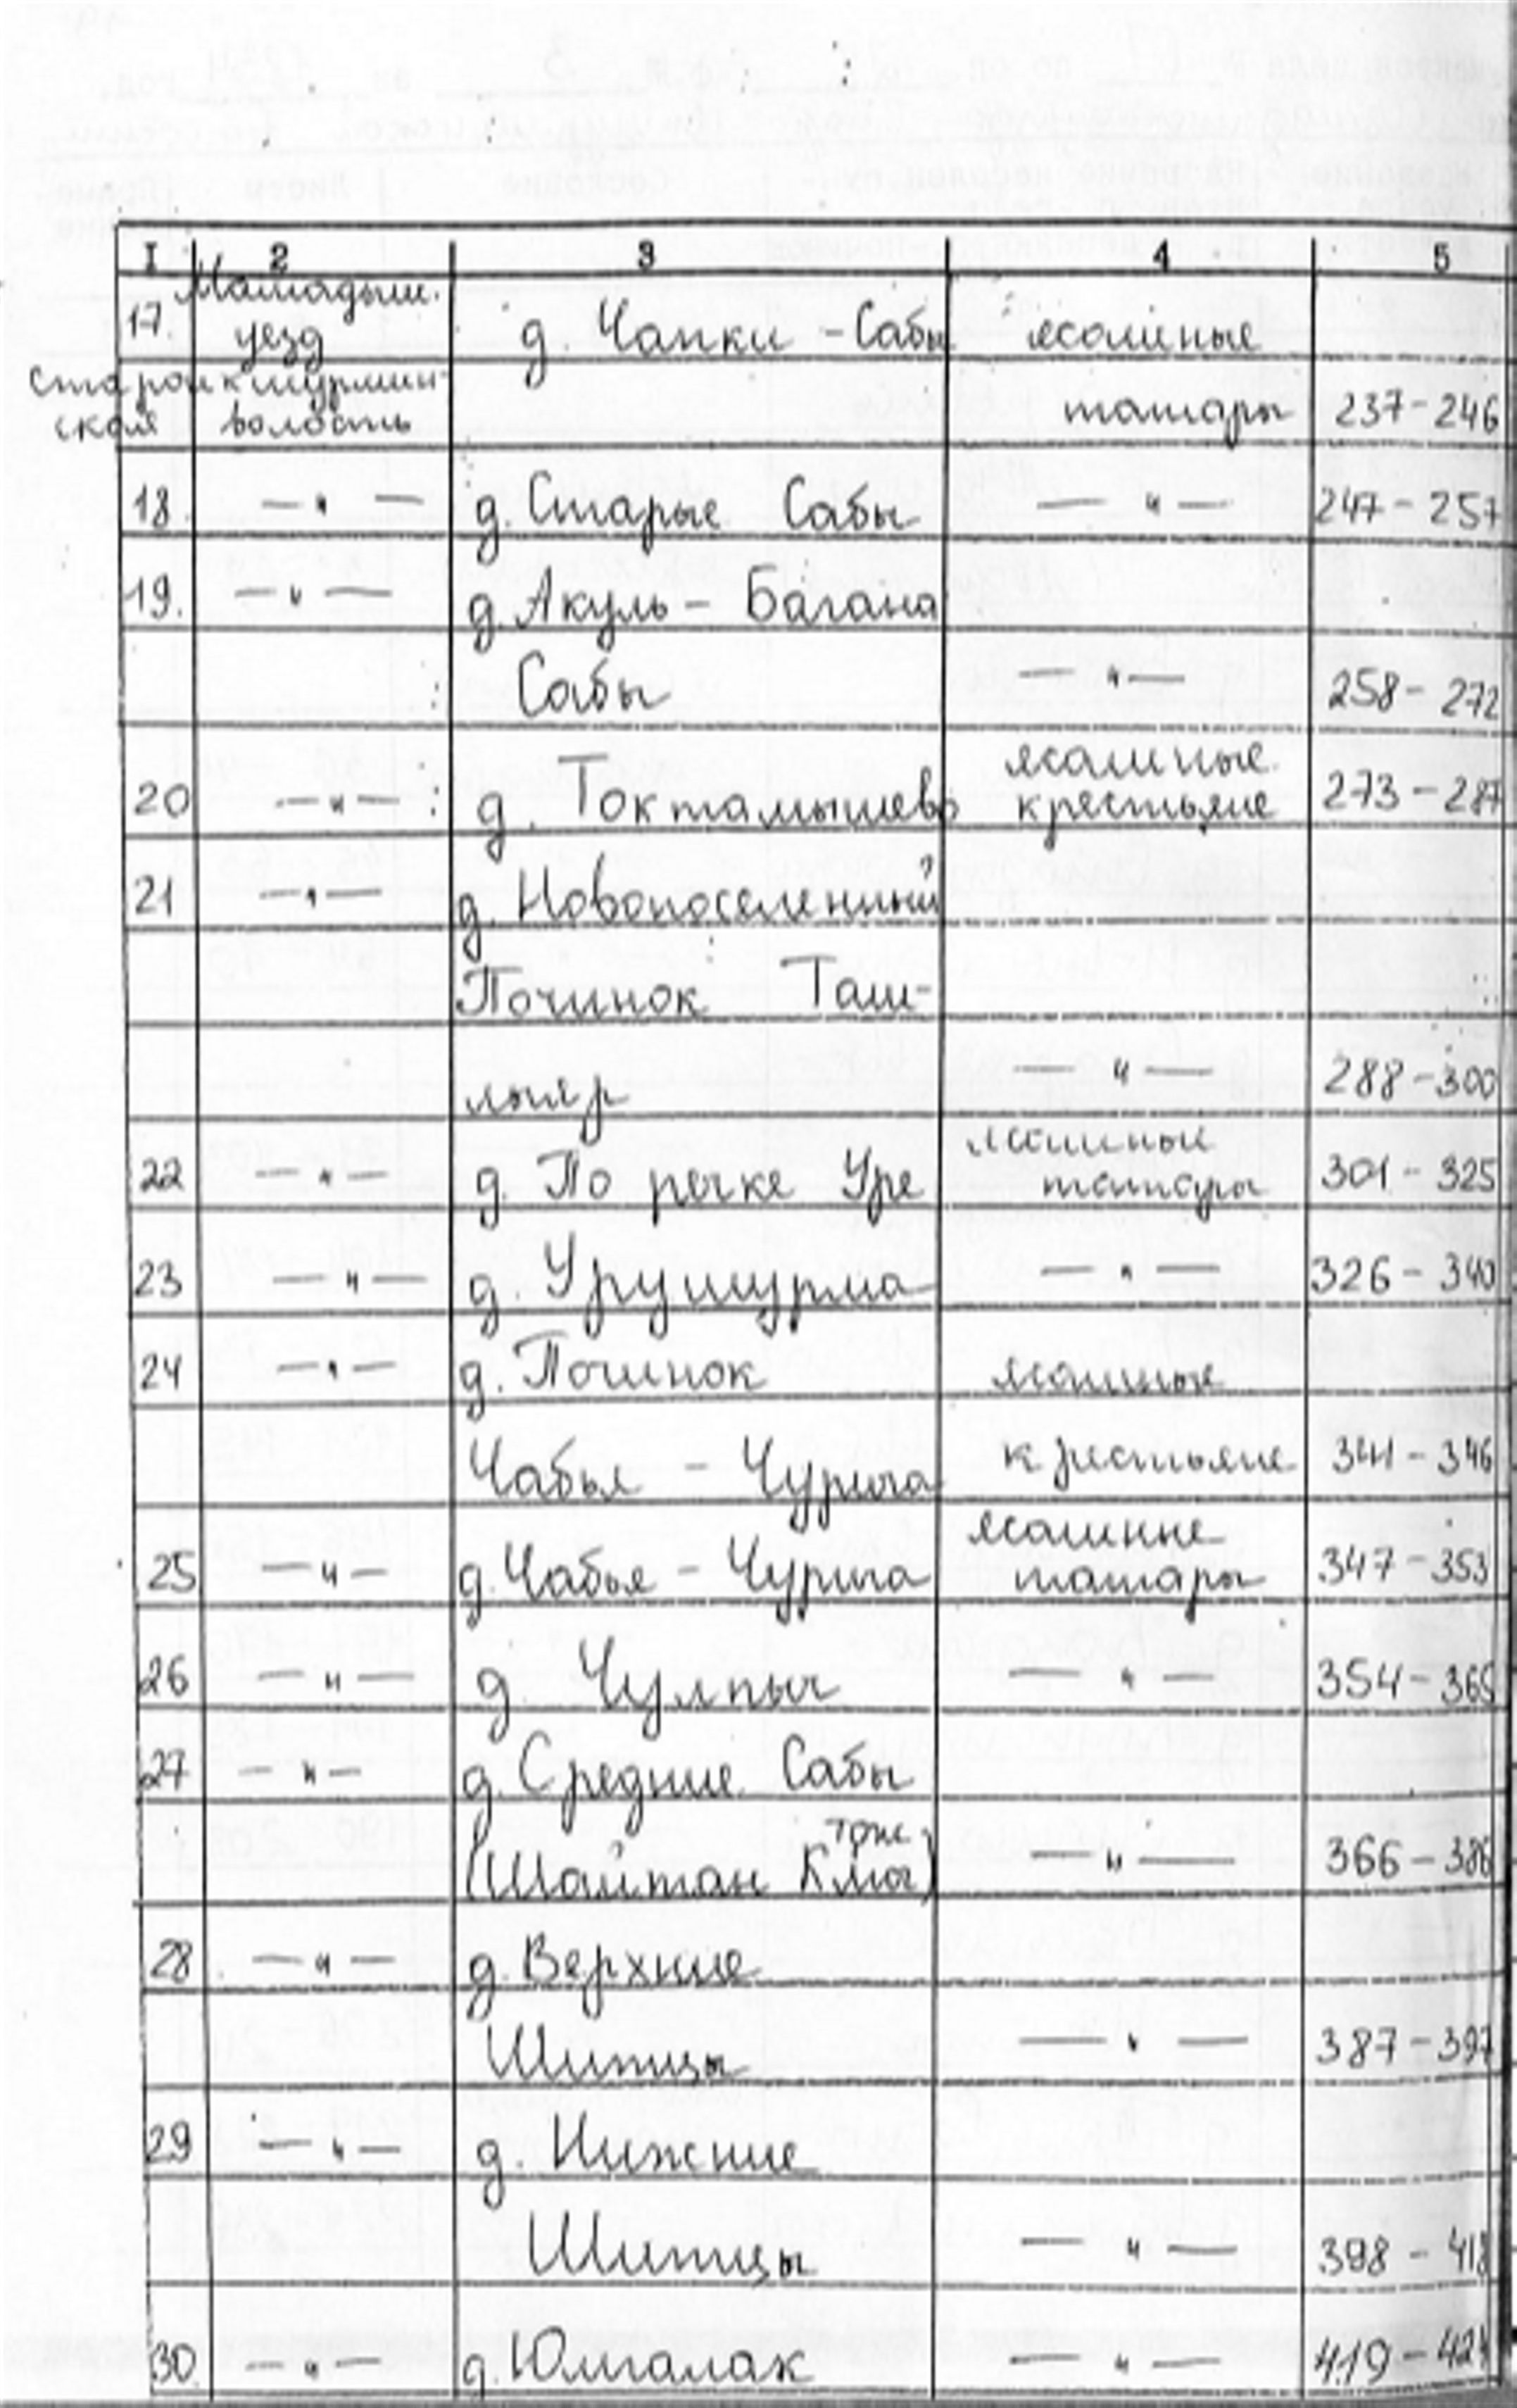 I 2 3 4 5
Мамадыш.
17. уезд д. Чапки - Сабы ясашные
Старой кшурмин-
ская волость татары 237-246
18 —"— д. Старые Сабы —"— 247-257
19. —"— д. Акуль- Багана
Сабы —"— 258-272
ясашные
20 —"— д. Токтамышево крестьяне 273-287
21 —"— д. Новопоселенный
Починок Таш-
лыяр —"— 288-300
ясашные
22 —"— д. По речке Уре татары 301-325
23 —"— д. Урушурма —"— 326-340
24 —"— д. Починок ясашные
Чабья - Чурыга крестьяне 341-346
ясашные
25 —"— д. Чабья - Чурыга татары 347-353
26 —"— д. Чулпыч —"— 354-365
27 —"— д. Средние Сабы
тож
(Шайтан Клыч) —"— 366-386
28 —"— д. Верхние
Шитцы —"— 387-397
29 —"— д. Нижние
Шитцы —"— 398-418
30 —"— д. Юлгалак —"— 419-424